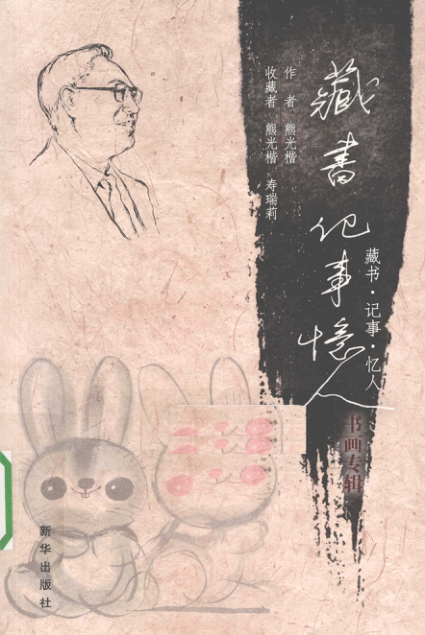 藏書记事憶人
藏书·记事·忆人
书画专辑
作 者 熊光楷
收藏者 熊光楷 寿瑞莉
新华出版社